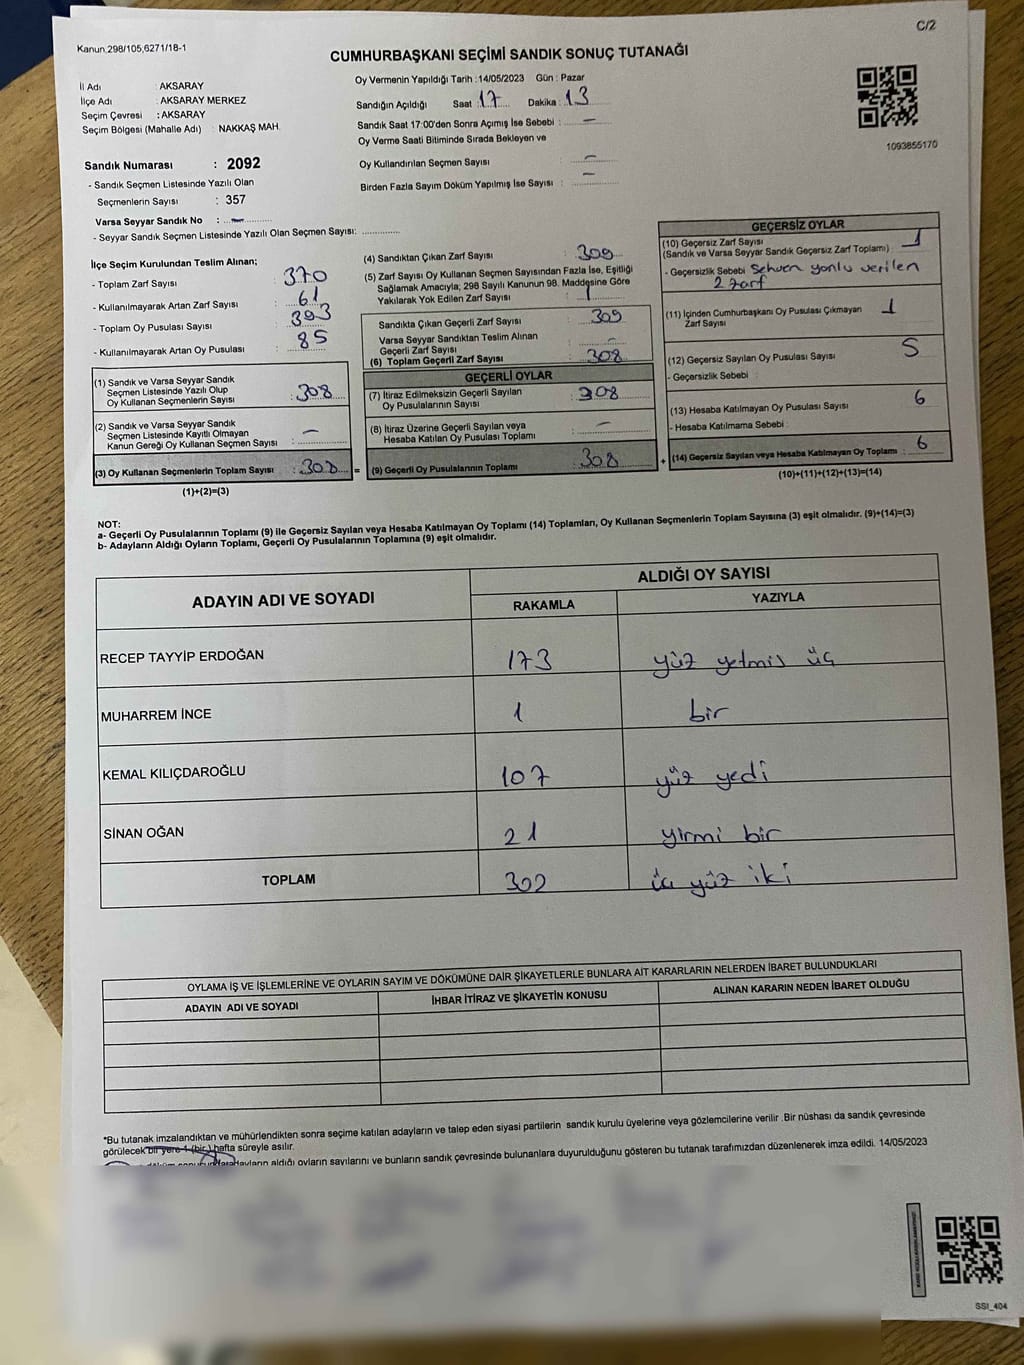 C/2
Kanun.298/105,6271/18-1
CUMHURBAŞKANI SEÇİMİ SANDIK SONUÇ TUTANAĞI
İl Adı : AKSARAY
İlçe Adı : AKSARAY MERKEZ
Seçim Çevresi : AKSARAY
Seçim Bölgesi (Mahalle Adı) : NAKKAŞ MAH.
Oy Vermenin Yapıldığı Tarih : 14/05/2023 Gün : Pazar
Sandığın Açıldığı Saat : 17 Dakika : 13
Sandık Saat 17:00'den Sonra Açımış İse Sebebi : -
Oy Verme Saati Bitiminde Sırada Bekleyen ve
Oy Kullandırılan Seçmen Sayısı : -
Birden Fazla Sayım Döküm Yapılmış İse Sayısı : -
1093855170
Sandık Numarası : 2092
- Sandık Seçmen Listesinde Yazılı Olan
Seçmenlerin Sayısı : 357
Varsa Seyyar Sandık No : -
- Seyyar Sandık Seçmen Listesinde Yazılı Olan Seçmen Sayısı:
İlçe Seçim Kurulundan Teslim Alınan;
- Toplam Zarf Sayısı : 370
- Kullanılmayarak Artan Zarf Sayısı : 61
- Toplam Oy Pusulası Sayısı : 393
- Kullanılmayarak Artan Oy Pusulası : 85
(1) Sandık ve Varsa Seyyar Sandık
Seçmen Listesinde Yazılı Olup
Oy Kullanan Seçmenlerin Sayısı : 308
(2) Sandık ve Varsa Seyyar Sandık
Seçmen Listesinde Kayıtlı Olmayan
Kanun Gereği Oy Kullanan Seçmen Sayısı : -
(3) Oy Kullanan Seçmenlerin Toplam Sayısı : 308 =
(1)+(2)=(3)
(4) Sandıktan Çıkan Zarf Sayısı : 309
(5) Zarf Sayısı Oy Kullanan Seçmen Sayısından Fazla İse, Eşitliği
Sağlamak Amacıyla; 298 Sayılı Kanunun 98. Maddesine Göre
Yakılarak Yok Edilen Zarf Sayısı : 1
Sandıkta Çıkan Geçerli Zarf Sayısı : 309
Varsa Seyyar Sandıktan Teslim Alınan
Geçerli Zarf Sayısı : -
(6) Toplam Geçerli Zarf Sayısı : 308
GEÇERLİ OYLAR
(7) İtiraz Edilmeksizin Geçerli Sayılan
Oy Pusulalarının Sayısı : 308
(8) İtiraz Üzerine Geçerli Sayılan veya
Hesaba Katılan Oy Pusulası Toplamı : -
(9) Geçerli Oy Pusulalarının Toplamı : 308 +
GEÇERSİZ OYLAR
(10) Geçersiz Zarf Sayısı
(Sandık ve Varsa Seyyar Sandık Geçersiz Zarf Toplamı) : 1
- Geçersizlik Sebebi Sehven yanlış verilen
2 zarf
(11) İçinden Cumhurbaşkanı Oy Pusulası Çıkmayan
Zarf Sayısı 1
(12) Geçersiz Sayılan Oy Pusulası Sayısı 5
- Geçersizlik Sebebi :
(13) Hesaba Katılmayan Oy Pusulası Sayısı 6
- Hesaba Katılmama Sebebi :
(14) Geçersiz Sayılan veya Hesaba Katılmayan Oy Toplamı : 6
(10)+(11)+(12)+(13)=(14)
NOT:
a- Geçerli Oy Pusulalarının Toplamı (9) ile Geçersiz Sayılan veya Hesaba Katılmayan Oy Toplamı (14) Toplamları, Oy Kullanan Seçmenlerin Toplam Sayısına (3) eşit olmalıdır. (9)+(14)=(3)
b- Adayların Aldığı Oyların Toplamı, Geçerli Oy Pusulalarının Toplamına (9) eşit olmalıdır.
ADAYIN ADI VE SOYADI
ALDIĞI OY SAYISI
RAKAMLA YAZIYLA
RECEP TAYYİP ERDOĞAN 173 yüz yetmis üç
MUHARREM İNCE 1 bir
KEMAL KILIÇDAROĞLU 107 yüz yedi
SİNAN OĞAN 21 yirmi bir
TOPLAM 302 üç yüz iki
OYLAMA İŞ VE İŞLEMLERİNE VE OYLARIN SAYIM VE DÖKÜMÜNE DAİR ŞİKAYETLERLE BUNLARA AİT KARARLARIN NELERDEN İBARET BULUNDUKLARI
ADAYIN ADI VE SOYADI İHBAR İTİRAZ VE ŞİKAYETİN KONUSU ALINAN KARARIN NEDEN İBARET OLDUĞU
*Bu tutanak imzalandıktan ve mühürlendikten sonra seçime katılan adayların ve talep eden siyasi partilerin sandık kurulu üyelerine veya gözlemcilerine verilir .Bir nüshası da sandık çevresinde
görülecek bir yere 1 (bir) hafta süreyle asılır.
aldığı oyların sayılarını ve bunların sandık çevresinde bulunanlara duyurulduğunu gösteren bu tutanak tarafımızdan düzenlenerek imza edildi. 14/05/2023
SSI_404